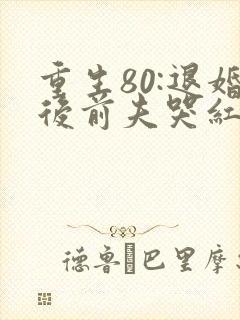 重生80:退婚
後前夫哭紅
德魯·巴里摩